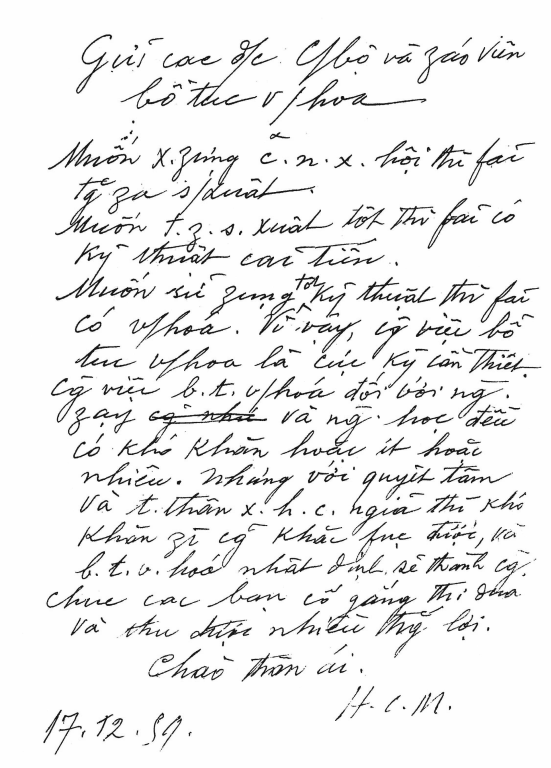 Gửi các đ/c C/bộ và záo viên
bổ túc v/hoá
Muốn x.zựng c.n.x. hội thì fải
tg za s/xuất.
Muốn t.z.s. xuất tốt thì fải có
kỹ thuật cải tiến.
Muốn sử zụng tốt kỹ thuật thì fải
có v/hoá. Vì vậy, cg việc bổ
túc v/hoá là cực kỳ cần thiết.
Cg việc b.t.v/hoá đối với ng.
zạy cg như và ng. học đều
có khó khăn hoặc ít hoặc
nhiều. Nhưng với quyết tâm
và t.thần x.h.c. nghĩa thì khó
khăn zì cg khắc fục được, và
b.t.v.hoá nhất định sẽ thành cg.
Chúc các bạn cố gắng thi đua
và thu được nhiều thg lợi.
Chào thân ái.
H.C.M.
17.12.59.